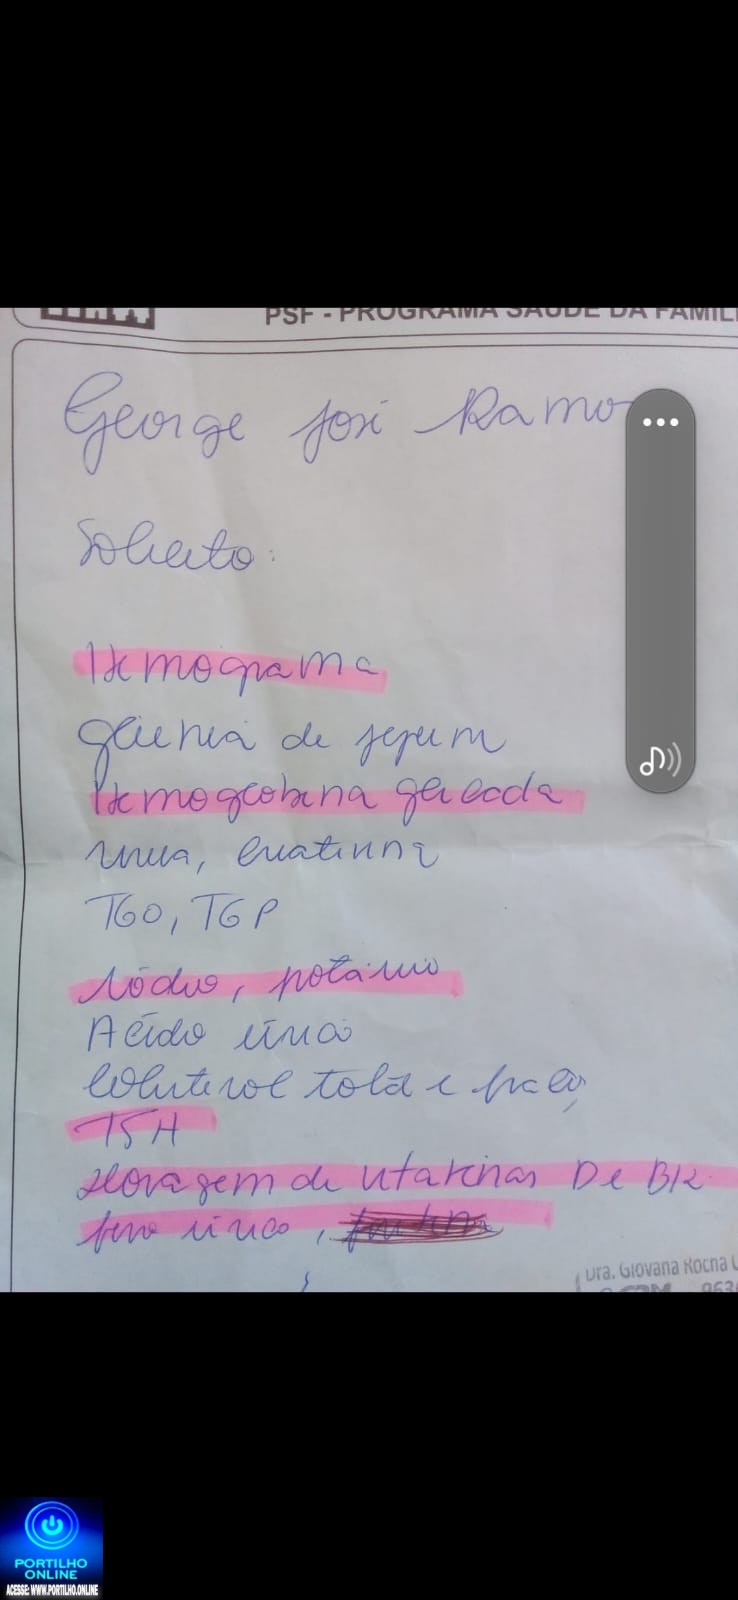 PSF - PROGRAMA SAÚDE DA FAMIL
George José Ramo
Solicito:
Hemograma
glicemia de jejum
Hemoglobina glicada
uréia, creatinina
TGO, TGP
sódio, potássio
Acido úrico
Colesterol total e frações
TSH
dosagem de vitaminas D e B12
ferro sérico,
Dra. Giovana Rocha
PORTILHO
ONLINE
ACESSE: WWW.PORTILHO.ONLINE